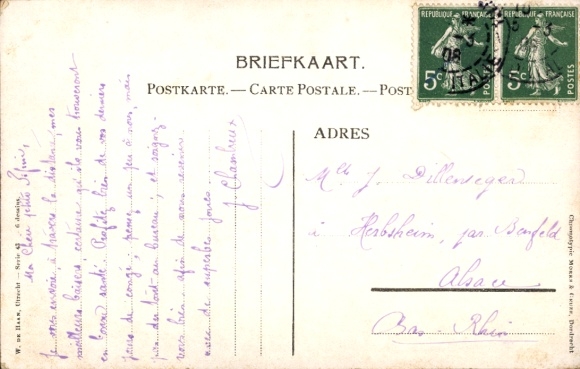 BRIEFKAART.
POSTKARTE. — CARTE POSTALE. — POST
ADRES
REPUBLIQUE FRANÇAISE
5c
POSTES
REPUBLIQUE FRANÇAISE
5c
POSTES
08
Melle J. Dillenseger
à Herbsheim, par Benfeld
Alsace
Bas-Rhin
W. DE HAAN, Utrecht — Serie 43 - 6 dessins.
Chromotypie MORKS & GEUZE, Dordrecht
Ma Chère petite
je vous envoie, à travers la distance, mes
meilleurs baisers, certaine qu'ils vous trouveront
en bonne santé. Profitez bien de vos derniers
jours de congé, pensez un peu à nous, mais
pas du tout au bureau; et soignez-
vous bien, afin de nous revenir
avec de superbes joues.
J. Chambreux